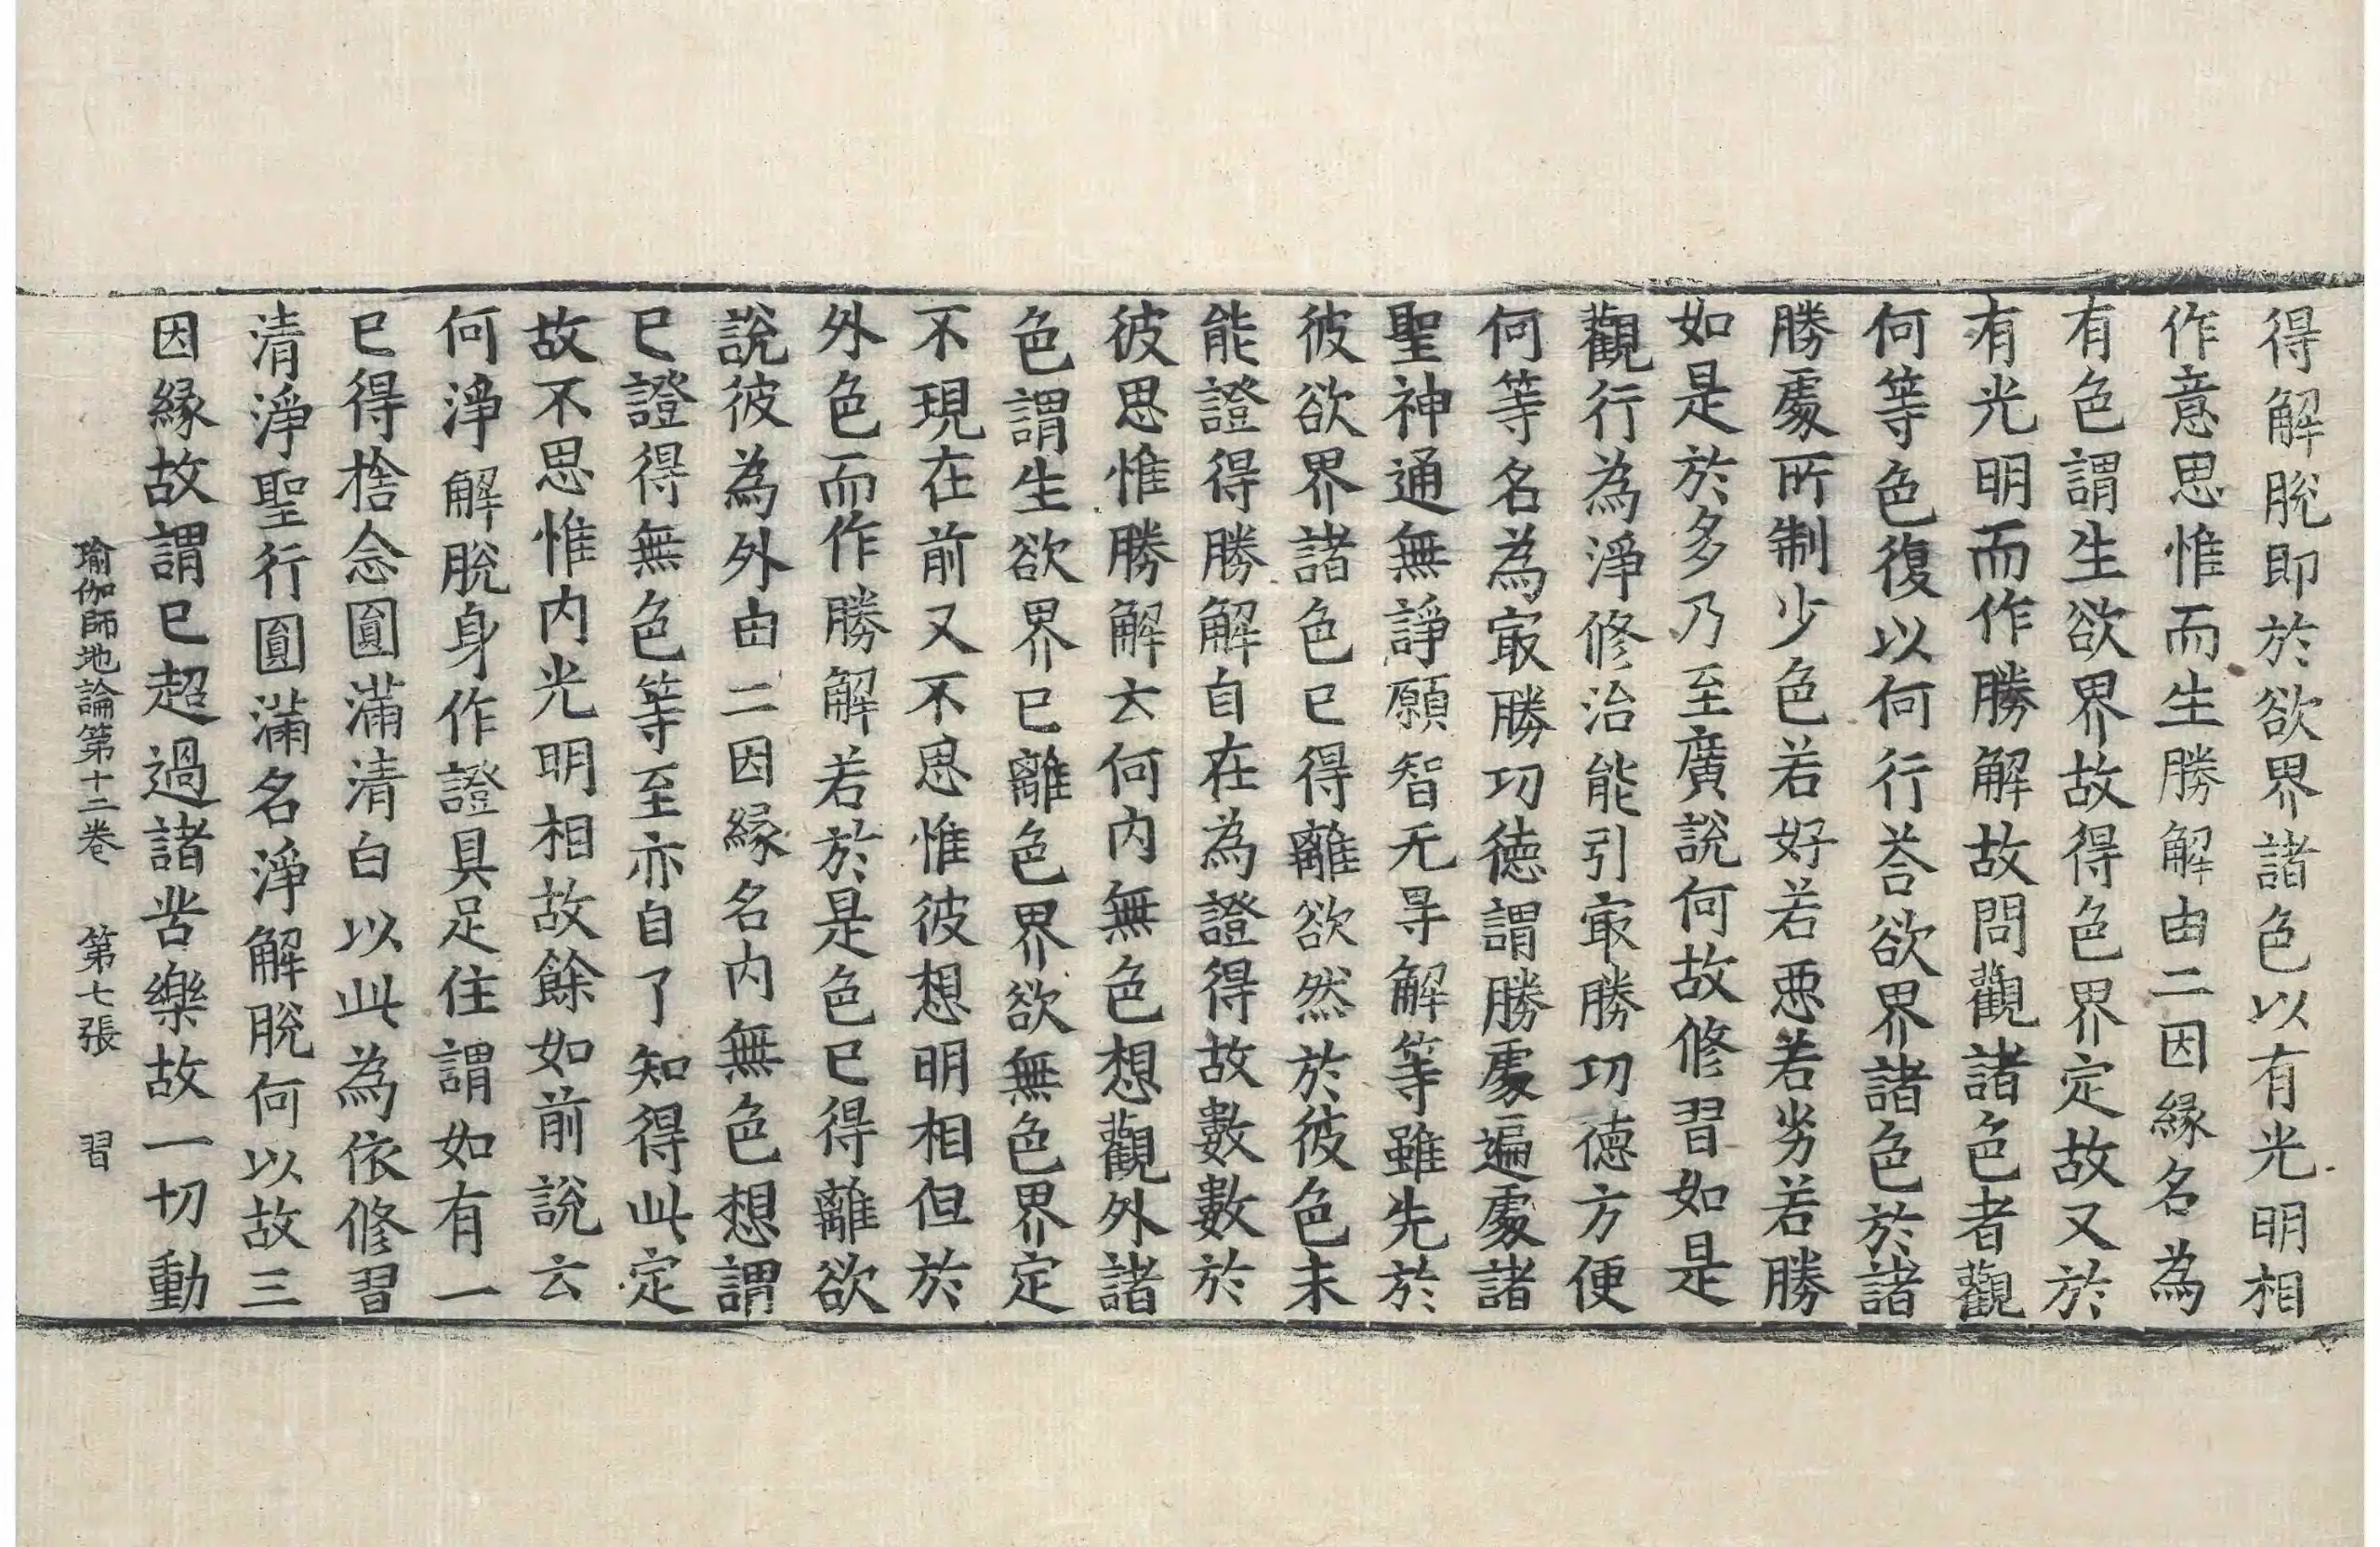 得解脫即於欲界諸色以有光明相
作意思惟而生勝解由二因緣名為
有色謂生欲界故得色界定故又於
有光明而作勝解故問觀諸色者觀
何等色復以何行荅欲界諸色於諸
勝處所制少色若好若惡若劣若勝
如是於多乃至廣說何故修習如是
觀行為淨修治能引㝡勝功德方便
何等名為㝡勝功德謂勝處遍處諸
聖神通無諍願智无㝵解等雖先於
彼欲界諸色已得離欲然於彼色未
能證得勝解自在為證得故數數於
彼思惟勝解云何內無色想觀外諸
色謂生欲界已離色界欲無色界定
不現在前又不思惟彼想明相但於
外色而作勝解若於是色已得離欲
說彼為外由二因緣名內無色想謂
已證得無色等至亦自了知得此定
故不思惟內光明相故餘如前說云
何淨解脫身作證具足住謂如有一
已得捨念圓滿清白以此為依修習
清淨聖行圓滿名淨解脫何以故三
因緣故謂已超過諸苦樂故一切動
瑜伽師地論第十二卷 第七張 習